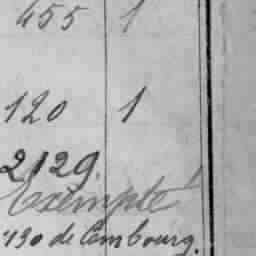 455 1
120 1
2129.
Exempté
190 de Combourg.